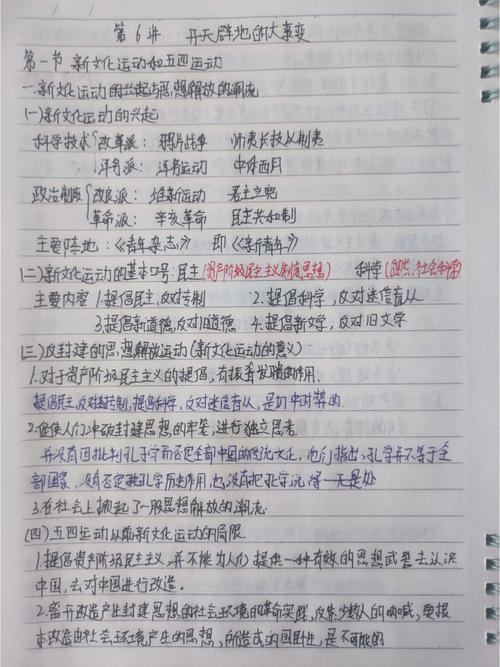 第6讲 开天辟地的大事变
第一节 新文化运动和五四运动
一.新文化运动的兴起与思想解放的潮流
(一)新文化运动的兴起
科学技术 改革派: 鸦片战争 师夷长技以制夷
洋务派: 洋务运动 中体西用
政治制度 改良派: 维新运动 君主立宪
革命派: 辛亥革命 民主共和制
主要阵地:《青年杂志》 即《新青年》
(二)新文化运动的基本口号:民主(资产阶级民主主义制度思想) 科学(自然、社会科学)
主要内容 1.提倡民主,反对专制 2.提倡科学,反对迷信盲从
3.提倡新道德,反对旧道德 4.提倡新文学,反对旧文学
(三)反封建的思想解放运动(新文化运动的意义)
1.对于资产阶级民主主义的提倡,有振聋发聩的作用.
提倡民主,反对专制,提倡科学,反对迷信盲从,是切中时弊的
2.促使人们冲破封建思想的牢笼,进行独立思考
并没有因批判孔子学而否定全部中国的传统文化,他们指出,孔学并不等于全
部国家,没有否定孔学历史作用,也没有把孔学说得一无是处
3.在社会上掀起了一股思想解放的潮流.
(四)五四运动以前新文化运动的局限.
1.提倡资产阶级民主主义,并不能为人们提供一种有效的思想武器去认识
中国,去对中国进行改造.
2.离开改造产生封建思想的社会环境的革命实践,仅靠少数人的呐喊,要根
本改造由社会环境产生的思想,所造成的国民性,是不可能的